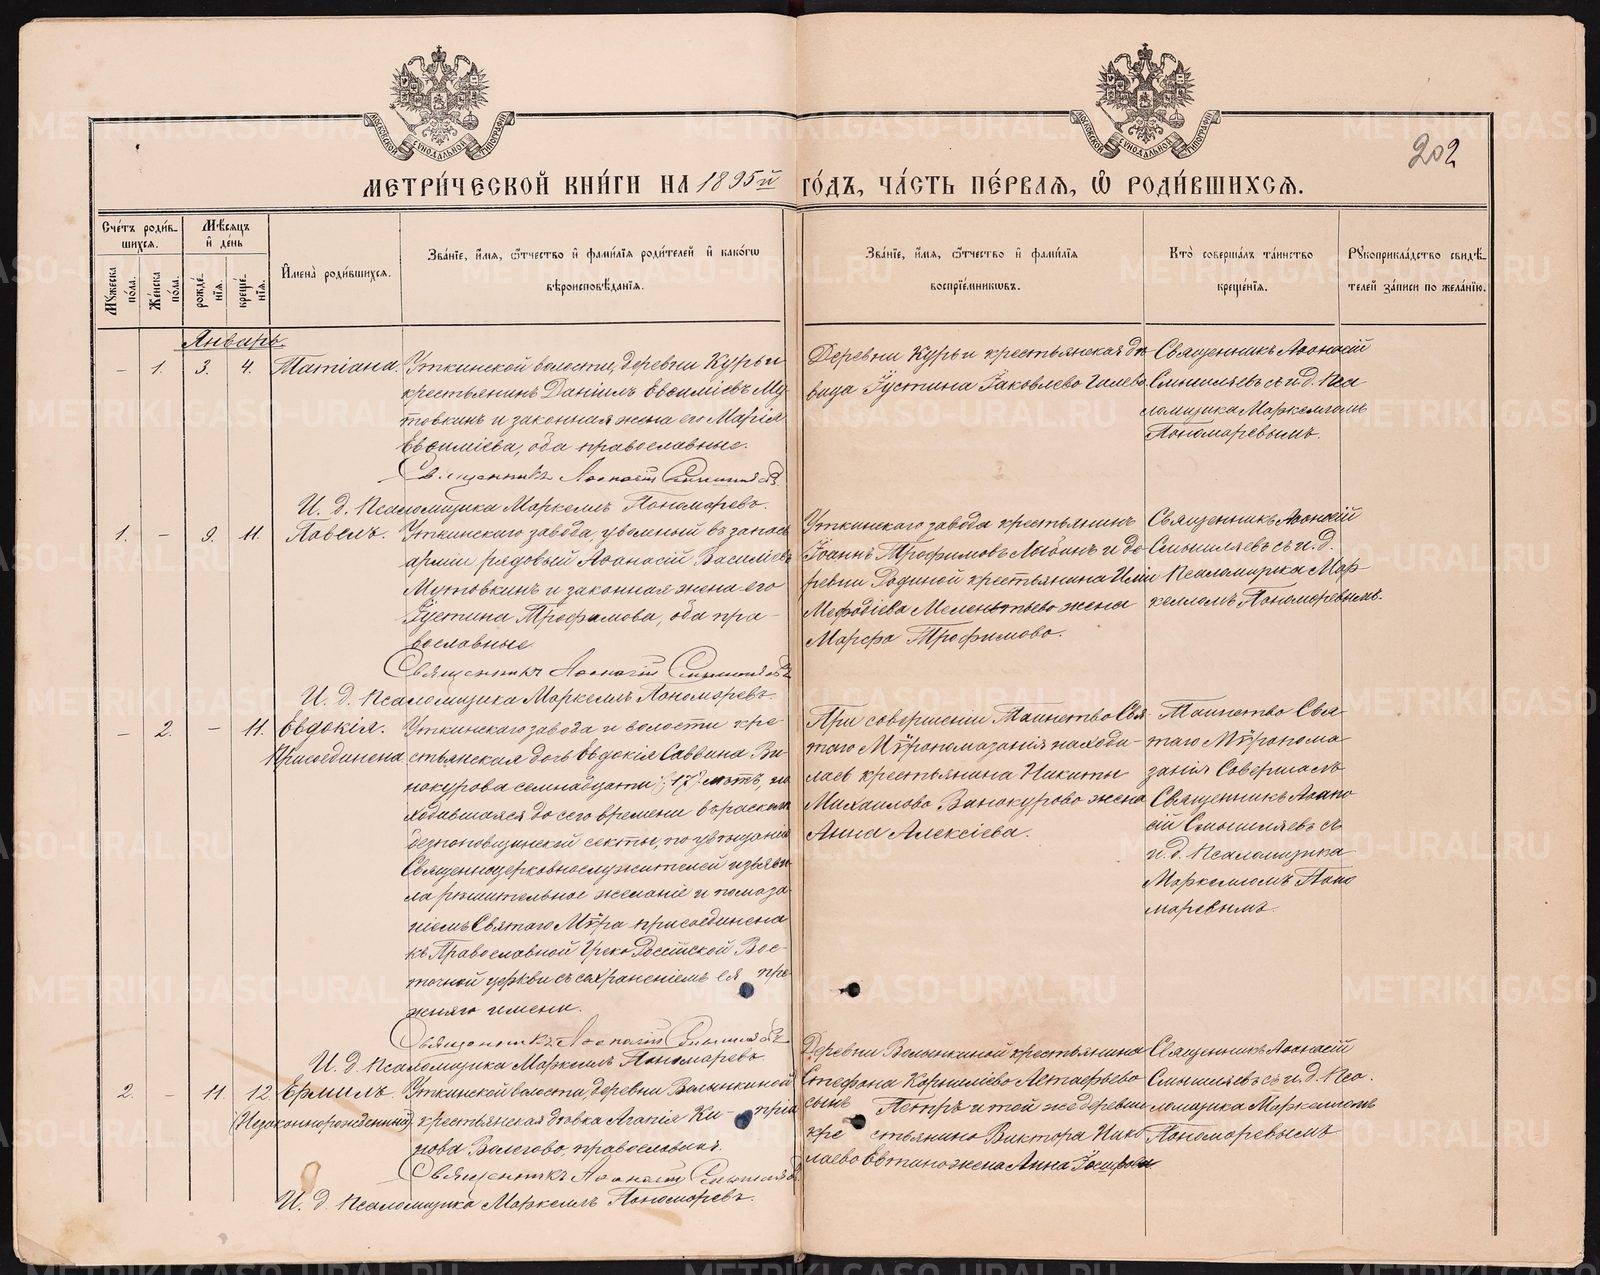 МОСКОВСКОЙ СѴНОДАЛЬНОЙ ТИПОГРАФІИ
МОСКОВСКОЙ СѴНОДАЛЬНОЙ ТИПОГРАФІИ
202
МЕТРИ́ЧЕСКОЙ КНИ́ГИ НА 1895й ГО́ДЪ, ЧА́СТЬ ПЕ́РВАЯ, Ѡ РОДИ́ВШИХСЯ.
Сче́тъ роди́вшихся.
Мѣ́сяцъ и҆ де́нь
Мꙋ́жеска по́ла.
Же́нска по́ла.
рожде́нїя.
креще́нїя.
И҆мена̀ роди́вшихся.
Зва́нїе, и҆́мя, ѻ҆́тчество и҆ фами́лїя роди́телей и҆ како́гѡ
вѣроисповѣ́данїя.
Зва́нїе, и҆́мя, ѻ҆́тчество и҆ фами́лїя
воспрїе́мникѡвъ.
Кто̀ соверша́лъ та́инство
креще́нїя.
Рꙋкоприкла́дство свидѣ́-
телей за́писи по жела́нїю.
Январь.
– 1. 3. 4. Татіана.
Уткинской волости, деревни Курьи
крестьянинъ Даніилъ Евѳиміевъ Му
товкинъ и законная жена его Марія
Евѳиміева, оба православные.
Священникъ Аѳанасій Смышляевъ
И. д. Псаломщика Маркеллъ Пономаревъ.
Деревни Курьи крестьянская дѣ
вица Іустина Іаковлева Галева
Священникъ Аѳонасій
Смышляевъ съ и. д. Пса
ломщика Маркелломъ
Пономаревымъ.
1. – 9. 11. Павелъ.
Уткинскаго завода, уволенный въ запасъ
арміи рядовый Аѳанасій Василіевъ
Мутовкинъ и законная жена его
Іустина Трофимова, оба пра-
вославные.
Священникъ Аѳанасій Смышляевъ
И. д. Псаломщика Маркеллъ Пономаревъ.
Уткинскаго завода крестьянинъ
Іоаннъ Трофимовъ и де
ревни Родиной крестьянина Иліи
Меѳодіева Мелентьева жена
Марѳа Трофимова.
Священникъ Аѳонасій
Смышляевъ съ и. д.
Псаломщика Мар-
келломъ Пономаревымъ.
– 2. – 11. Евдокія.
Присоединена
Уткинскаго завода и волости кре-
стьянская дочь Евдокія Саввина Ви-
нокурова семнадцати /:17:/ лѣтъ, на
ходившаяся до сего времени въ расколѣ
безпоповщинской секты, по увѣщанію
Священноцерковнослужителей изъяви
ла рѣшительное желаніе и помаза
ніемъ Святаго Мѵра присоединена
къ Православной Греко Россійской Вос-
точной церкви съ сохраненіемъ ея пре
жняго имени.
Священникъ Аѳанасій Смышляевъ
И. д. Псаломщика Маркеллъ Пономаревъ
При совершеніи Таинства Свя
таго Мѵропомазанія находи-
лась крестьянина Никиты
Михаилова Винокурова жена
Анна Алексіева.
Таинство Свя-
таго Мѵропома
занія Совершалъ
Священникъ Аѳана
сій Смышляевъ съ
и. д. Псаломщика
Маркелломъ Поно
маревымъ.
2. – 11. 12. Ермилъ.
(Незаконнорожденный)
Уткинской волости, деревни Волынкиной
крестьянская дѣвка Агапія Ки- пріа
нова православная.
Священникъ Аѳанасій Смышляевъ
И. д. Псаломщика Маркеллъ Пономаревъ.
Деревни Волынкиной крестьянина
Стефана Корниліева Астафьева
сынъ Петръ и той же деревни
кре стьянина Виктора Нико
лаева жена Анна Іосифова
Священникъ Аѳонасій
Смышляевъ съ и. д. Пса-
ломщика Маркелломъ
Пономаревымъ